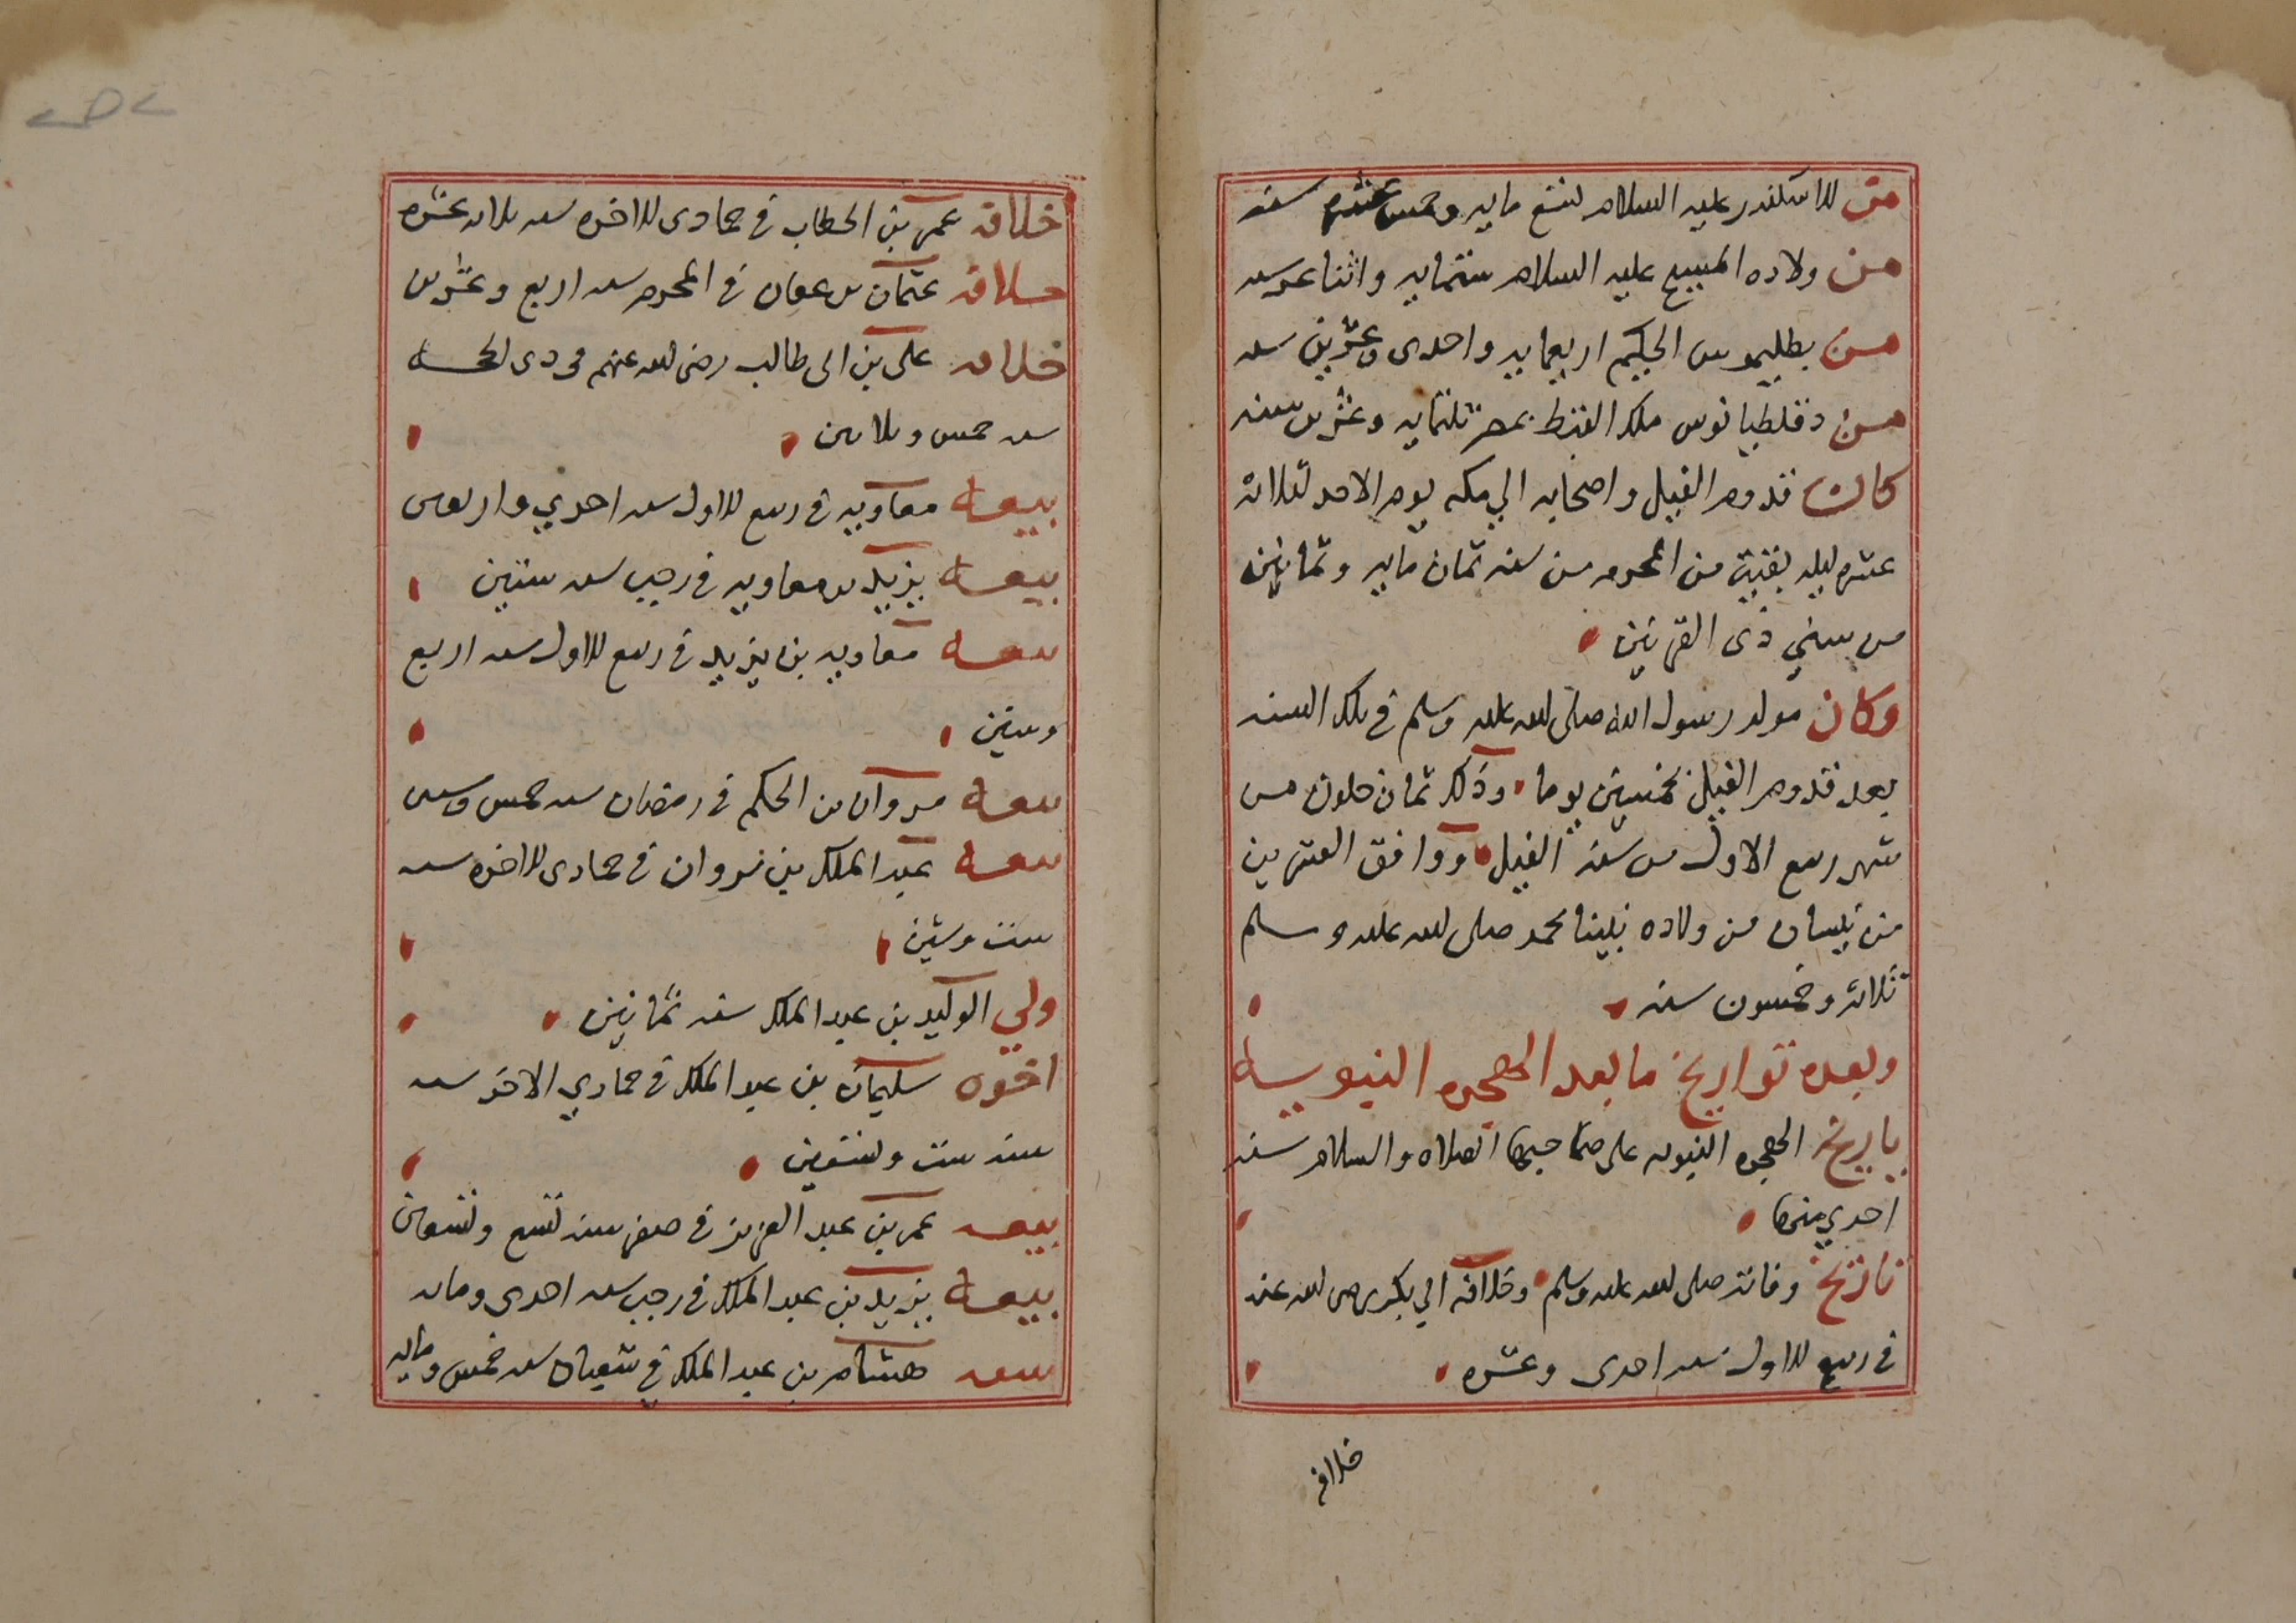 من الاسكندر عليه السلام لتسع مايه وخمس عشره سنه
من ولاده المسيح عليه السلام ستمايه واثنا عشر سنه
من بطليموس الحكيم اربعمايه واحدى وعشرين سنه
من دقلطيانوس ملك القبط بمصر ثلثمايه وعشرين سنه
كان قدوم الفيل واصحابه الي مكه يوم الاحد لثلاثة
عشر ليله بقيت من المحرم من سنه ثمان مايه وثمانين
من سني ذى القرنين
وكان مولد رسول الله صلى الله عليه وسلم في تلك السنه
بعد قدوم الفيل بخمسين يوما وذلك ثمان خلون من
شهر ربيع الاول من سنة الفيل ووافق العشرين
من نيسان من ولاده نبينا محمد صلى الله عليه وسلم
ثلاثة وخمسون سنه
وبعده تواريخ ما بعد الهجره النبويه
تاريخ الهجره النبويه على صاحبها الصلاه والسلام سنه
احدي منها
تاريخ وفاته صلى الله عليه وسلم وخلافة ابي بكر رضى الله عنه
في ربيع الاول سنه احدى وعشره
خلافة
خلافة عمر بن الخطاب في جمادى الاخره سنه ثلاث عشره
خلافة عثمان بن عفان في المحرم سنه اربع وعشرين
خلافة على بن ابى طالب رضى الله عنهم في ذى الحجه
سنه خمس وثلاثين
بيعة معاويه في ربيع الاول سنه احدي واربعين
بيعة يزيد بن معاويه في رجب سنه ستين
بيعة معاويه بن يزيد في ربيع الاول سنه اربع
وستين
بيعة مروان بن الحكم في رمضان سنه خمس وستين
بيعة عبد الملك بن مروان في جمادى الاخره سنه
ست وستين
ولي الوليد بن عبد الملك سنه ثمانين
اخوه سليمان بن عبد الملك في جمادي الاخر سنه
سنه ست وتسعين
بيعة عمر بن عبد العزيز في صفر سنه تسع وتسعين
بيعة يزيد بن عبد الملك في رجب سنه احدى ومايه
بيعة هشام بن عبد الملك في شعبان سنه خمس ومايه